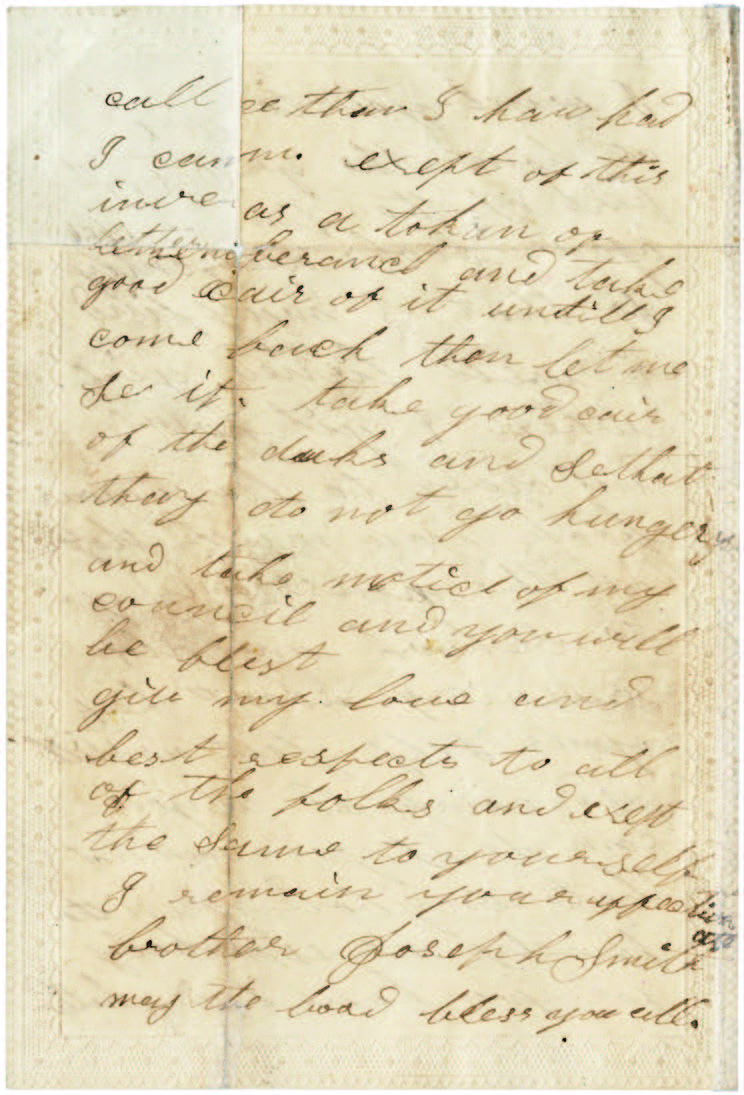 call ce than I have had
I cann. exept of this
inve as a tokan of
rememberance and take
good cair of it untill I
come back than let me
Se it. take good cair
of the duks and Se that
thay do not go hungery
and take notice of my
council and you will
be blest
give my love and
best respects to all
of the folks and exept
the Same to yourself
I remain your affec
brother Joseph Smith
may the Lord bless you all.